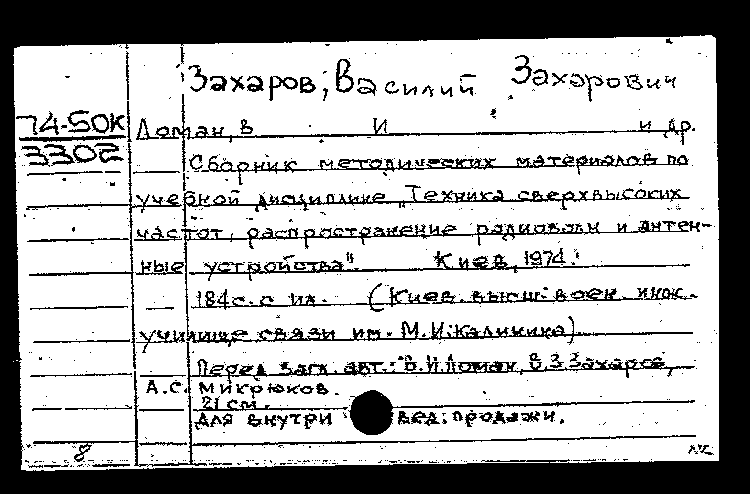 Захаров, Василий Захарович
74-50К
3302
Ломан, В И и др.
Сборник методических материалов по
учебной дисциплине „Техника сверхвысоких
частот, распространение радиоволн и антен-
ные устройства". Киев, 1974.
184 с. с ил. (Киев. высш. воен. инж.
училище связи им. М.И. Калинина).
Перед загл. авт.: В.И. Ломан, В.З. Захаров,
А.С. Микрюков.
21 см.
Для внутри вед. продажи.
8